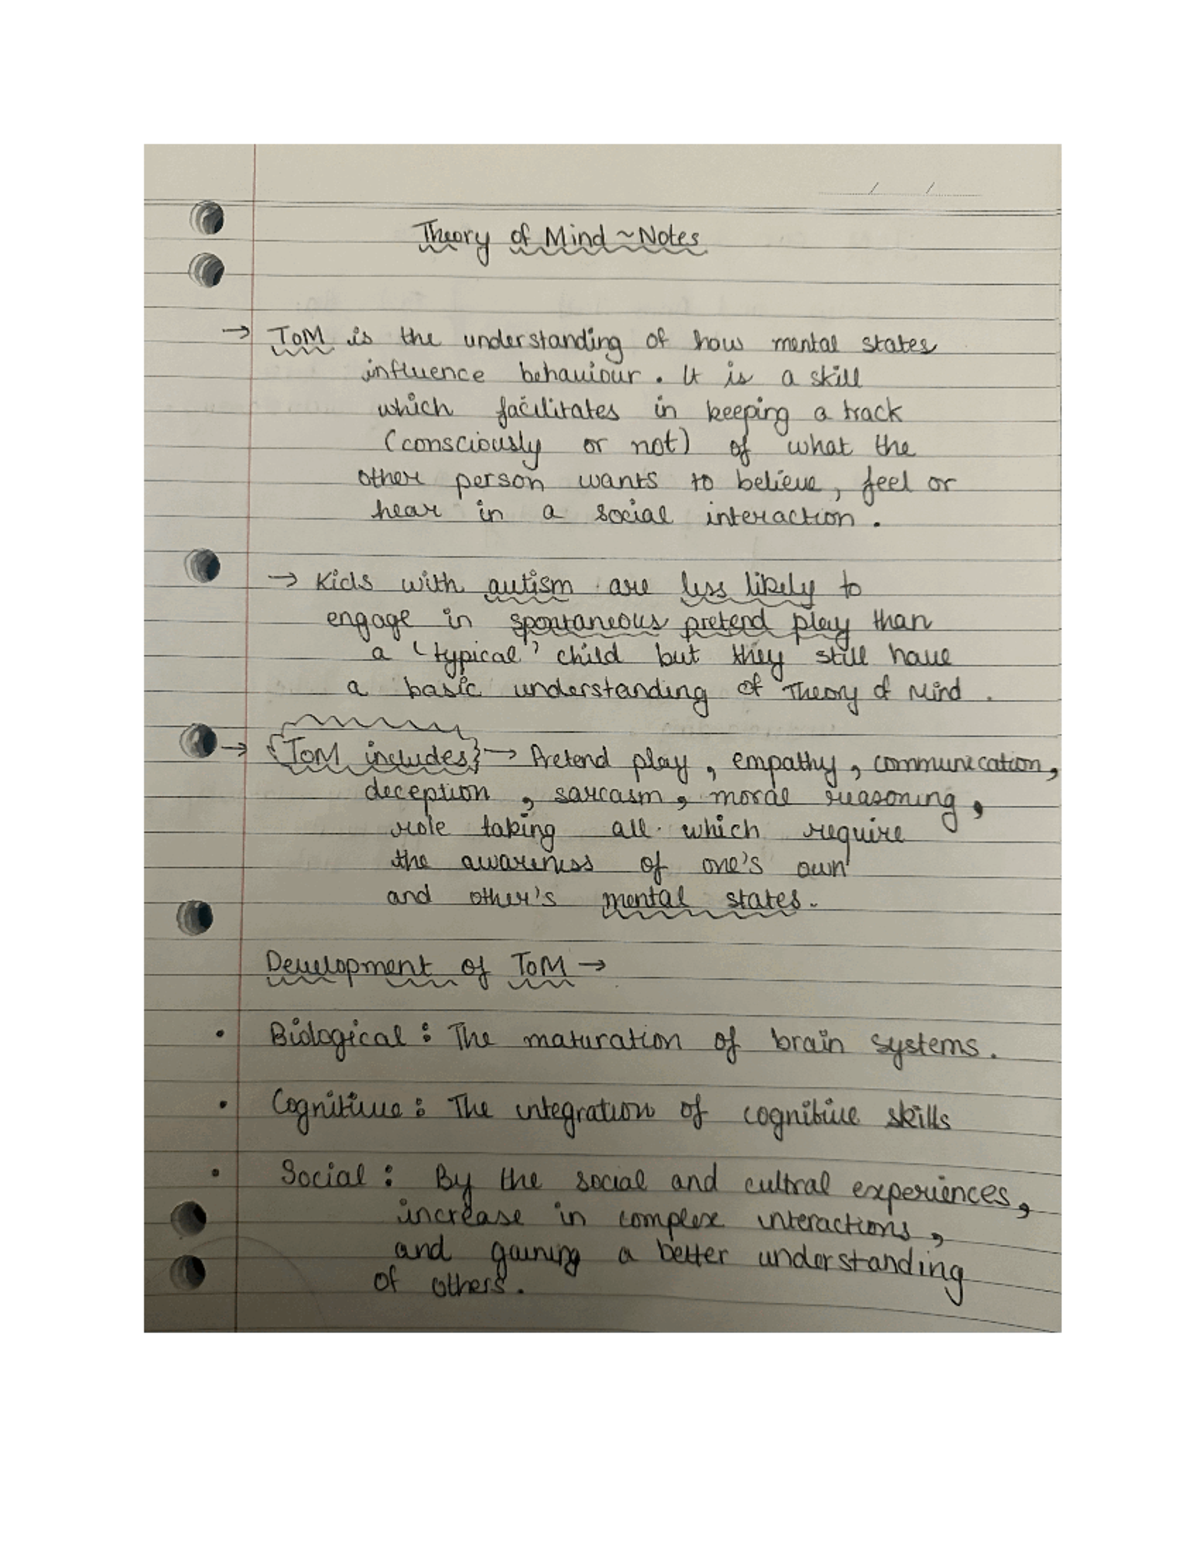 Theory of Mind ~ Notes
→ ToM is the understanding of how mental states
influence behaviour. It is a skill
which facilitates in keeping a track
(consciously or not) of what the
other person wants to believe, feel or
hear in a social interaction.
→ Kids with autism are less likely to
engage in spontaneous pretend play than
a 'typical' child but they still have
a basic understanding of Theory of Mind.
→ {ToM includes} → Pretend play, empathy, communication,
deception, sarcasm, moral reasoning,
role taking all which require
the awareness of one's own
and other's mental states.
Development of ToM →
• Biological: The maturation of brain systems.
• Cognitive: The integration of cognitive skills
• Social: By the social and cultral experiences,
increase in complex interactions,
and gaining a better understanding
of others.